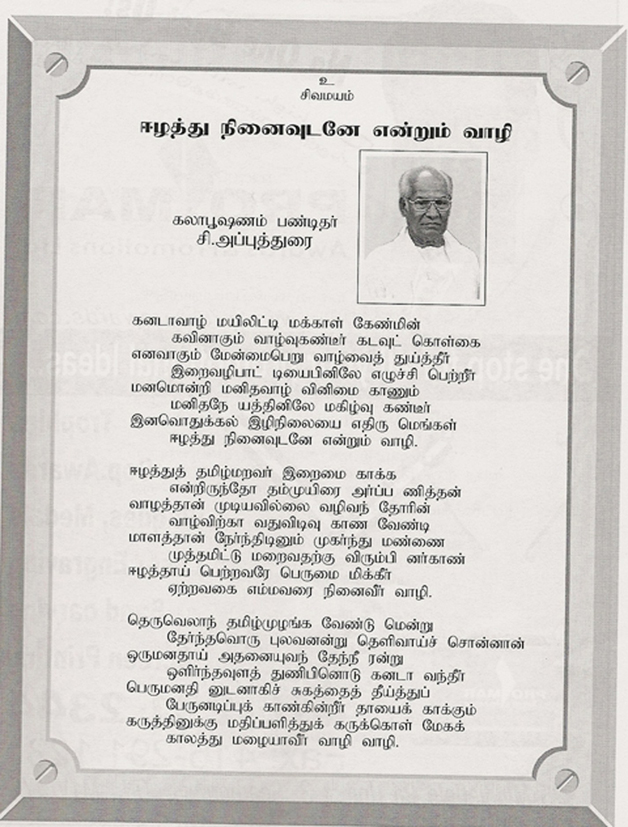 உ
சிவமயம்
ஈழத்து நினைவுடனே என்றும் வாழி
கலாபூஷணம் பண்டிதர்
சி.அப்புத்துரை
கனடாவாழ் மயிலிட்டி மக்காள் கேண்மின்
கவினாகும் வாழ்வுகண்டீர் கடவுட் கொள்கை
எனவாகும் மேன்மைபெறு வாழ்வைத் துய்த்தீர்
இறைவழிபாட் டியைபினிலே எழுச்சி பெற்றீர்
மனமொன்றி மனிதவாழ் வினிமை காணும்
மனிதநே யத்தினிலே மகிழ்வு கண்டீர்
இனவொதுக்கல் இழிநிலையை எதிரு மெங்கள்
ஈழத்து நினைவுடனே என்றும் வாழி.
ஈழத்துத் தமிழ்மறவர் இறைமை காக்க
என்றிருந்தோ தம்முயிரை அர்ப்ப ணித்தன்
வாழத்தான் முடியவில்லை வழிவந் தோரின்
வாழ்விற்கா வதுவிடிவு காண வேண்டி
மாளத்தான் நேர்ந்திடினும் முகர்ந்து மண்ணை
முத்தமிட்டு மறைவதற்கு விரும்பி னர்காண்
ஈழத்தாய் பெற்றவரே பெருமை மிக்கீர்
ஏற்றவகை எம்மவரை நினைவீர் வாழி.
தெருவெலாந் தமிழ்முழங்க வேண்டு மென்று
தேர்ந்தவொரு புலவனன்று தெளிவாய்ச் சொன்னான்
ஒருமனதாய் அதனையுவந் தேந்நீ ரன்று
ஒளிர்ந்தவுளத் துணிபினொடு கனடா வந்தீர்
பெருமனதி னுடனாகிச் சுகத்தைத் தீய்த்துப்
பேருனடிப்புக் காண்கின்றீர் தாயைக் காக்கும்
கருத்தினுக்கு மதிப்பளித்துக் கருக்கொள் மேகக்
காலத்து மழையாவீர் வாழி வாழி.